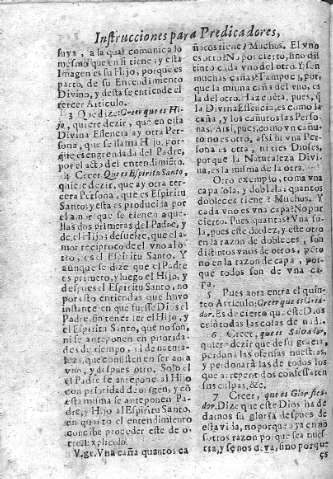 Instrucciones para Predicadores,
suya, a la qual comunica lo
mesmo que en si tiene: y esta
Imagen es su Hijo, porque es
parto, de su Entendimiento
Divino, y desta se entiende el
tercer Articulo.
3 Que dize: Creer que es Hi-
jo, quiere dezir, que en esta
Divina Essencia ay otra Per-
sona, que se llama Hijo, por-
que es engendrada del Padre,
por el acto del entendimiento.
4 Creer, que es Espiritu Santo,
quiere dezir, que ay otra ter-
cera Persona, que es Espiritu
Santo: y esta es producida por
el amor que se tienen aque-
llas dos primeras del Padre, y
del Hijo: de suerte, que el a-
mor reciproco del vno al o-
tro, es el Espiritu Santo. Y
aunque se dize que el Padre
es primero, y luego el Hijo, y
despues el Espiritu Santo, no
por esto entiendas que huvo
instante en que fuesse Dios el
Padre, sin tener este Hijo, y
el Espiritu Santo, que no son,
ni se anteponen en priorida-
des de tiempo, ni de natura-
leza, que consisten en ser antes
vno, y despues otro. Solo el
el Padre se antepone al Hijo
con prioridad de origen, y con
esta misma se anteponen Pa-
dre, y Hijo al Espiritu Santo,
en quanto el entendimiento
concibe proceder este de o-
tro explicolo.
V.gr. Vna caña quantos ca
ñutos tiene? Muchos. El vno
es otro? No por cierto, sino dis-
tinto cada vno del otro. Y son
muchas cañas? Tampoco, por-
que la misma caña del vno, es
la del otro. Haz cuẽta, pues, q̃
la Divina Essencia es como la
caña, y los cañutos las Perso-
nas. Assi, pues, como vn cañu-
to no es otro, assi vna Per-
sona es otra, ni tres Dioses,
porque la Naturaleza Divi-
na, es la misma de la otra.
Otro exemplo, toma vna
capa sola, y doblela: quantos
dobleces tiene? Muchos. Y
cada vno es vna capa? No por
cierto. Pues quantas? Vna so-
la, pues este doblez, y este otro
en la razon de dobleces, son
distintos vnos de otros, pero
no en la razon de capa, por-
que todos son de vna ca-
pa.
Pues aora entra el quin-
to Articulo: Creer que es Criador.
Es de cierto que este Dios
criò todas las cosas de nada.
6 Creer, que es Salvador,
quiere dezir que da su gracia,
perdona las ofensas nuestras,
y perdonarà las de todos los
que arrepentidos confessaren
sus culpas, &c.
7 Creer, que es Glorifica-
dor. Dize que este Dios ha de
darnos su gloria despues de
esta vida, no porque aya en no-
sotros razon porque sea nues-
tra, y se nos deva, sino porque
es